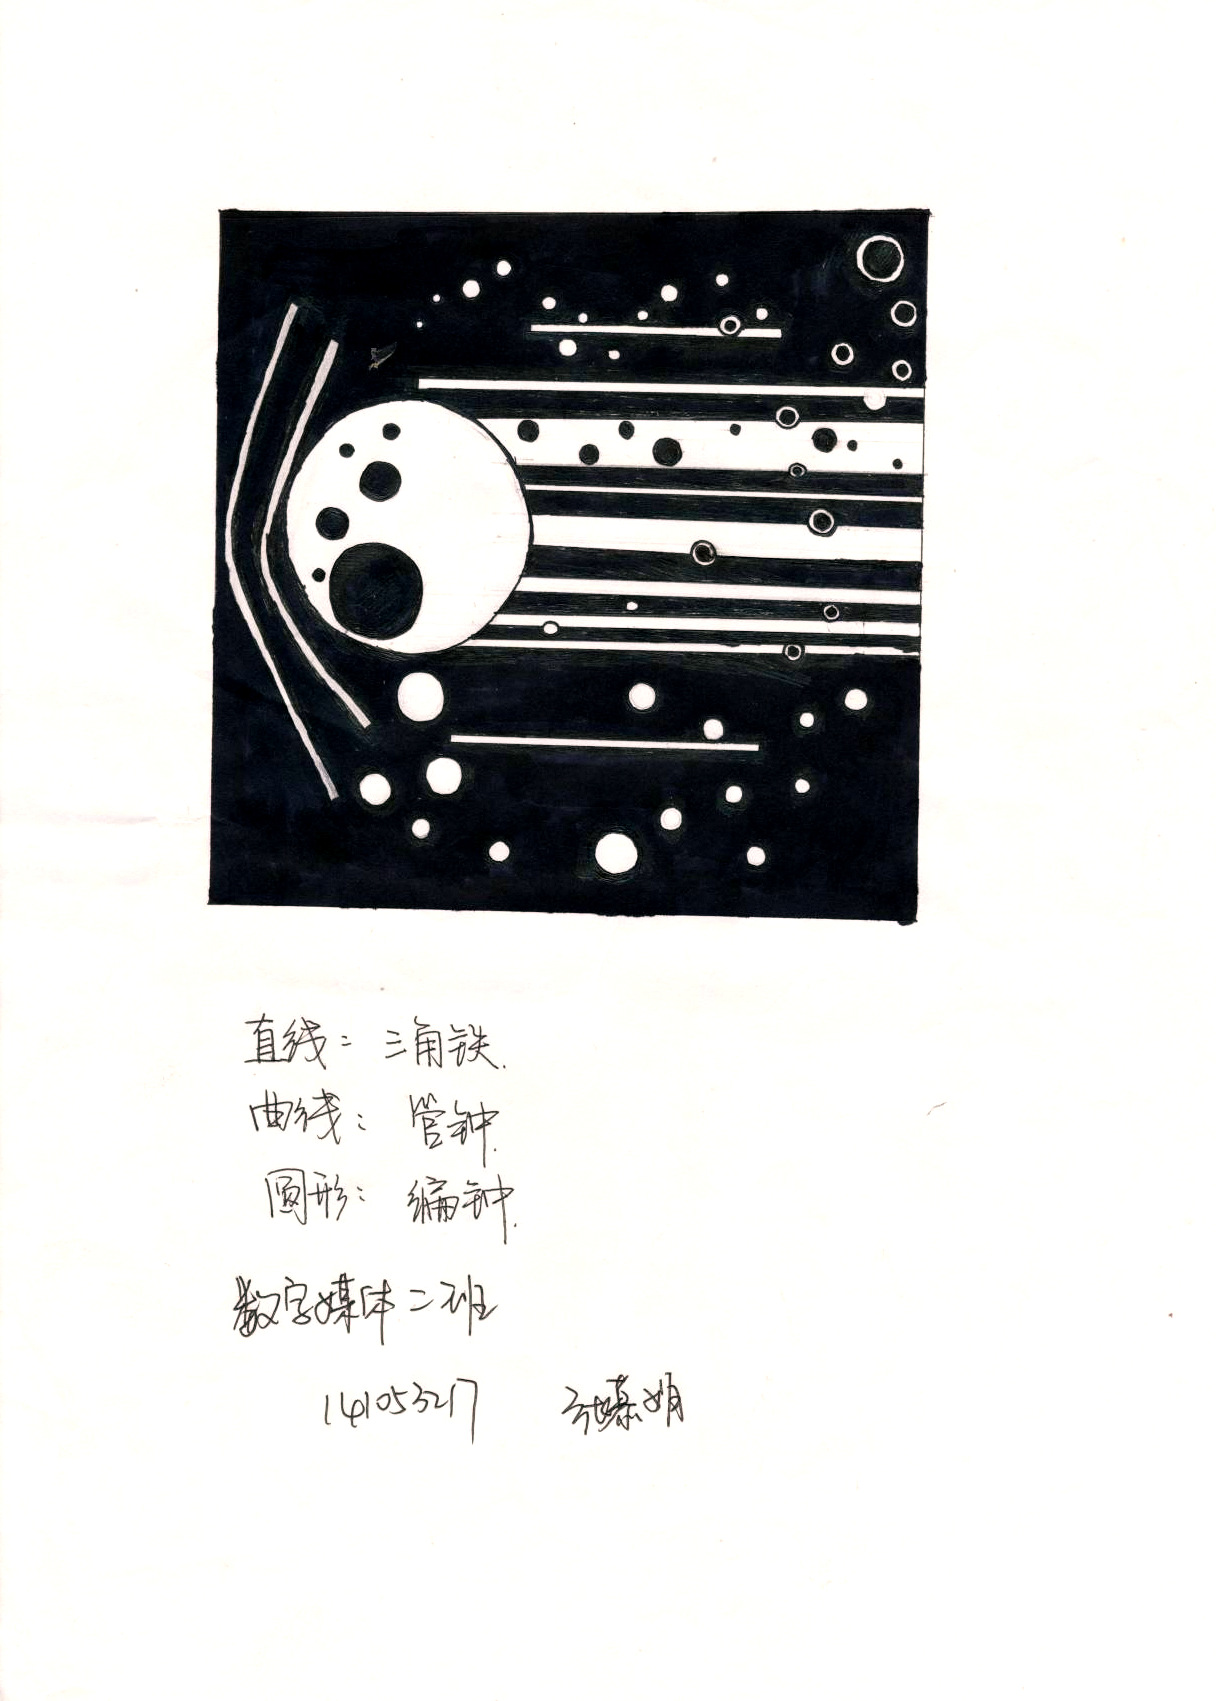 直线：三角铁.
曲线：管钟.
圆形：编钟.
数字媒体二班
141053217 张慕娟